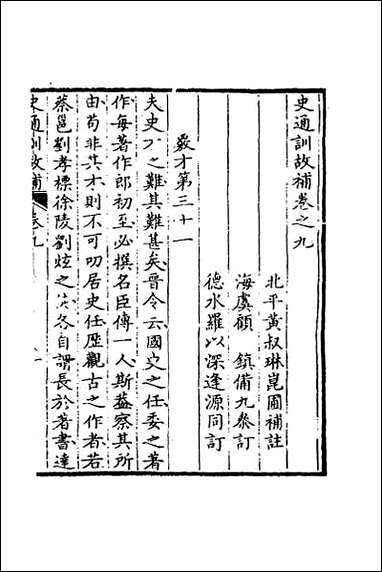 史通訓故補卷之九
北平黃叔琳崑圃補註
海虞顧 鎮備九參訂
德水羅以深逢源同訂
覈才第三十一
夫史才之難其難甚矣晉令云國史之任委之著
作每著作郎初至必撰名臣傳一人斯蓋察其所
由苟非其才則不可叨居史任歷觀古之作者若
蔡邕劉孝標徐陵劉炫之流各自謂長於著書達
史通訓故補 卷九 一